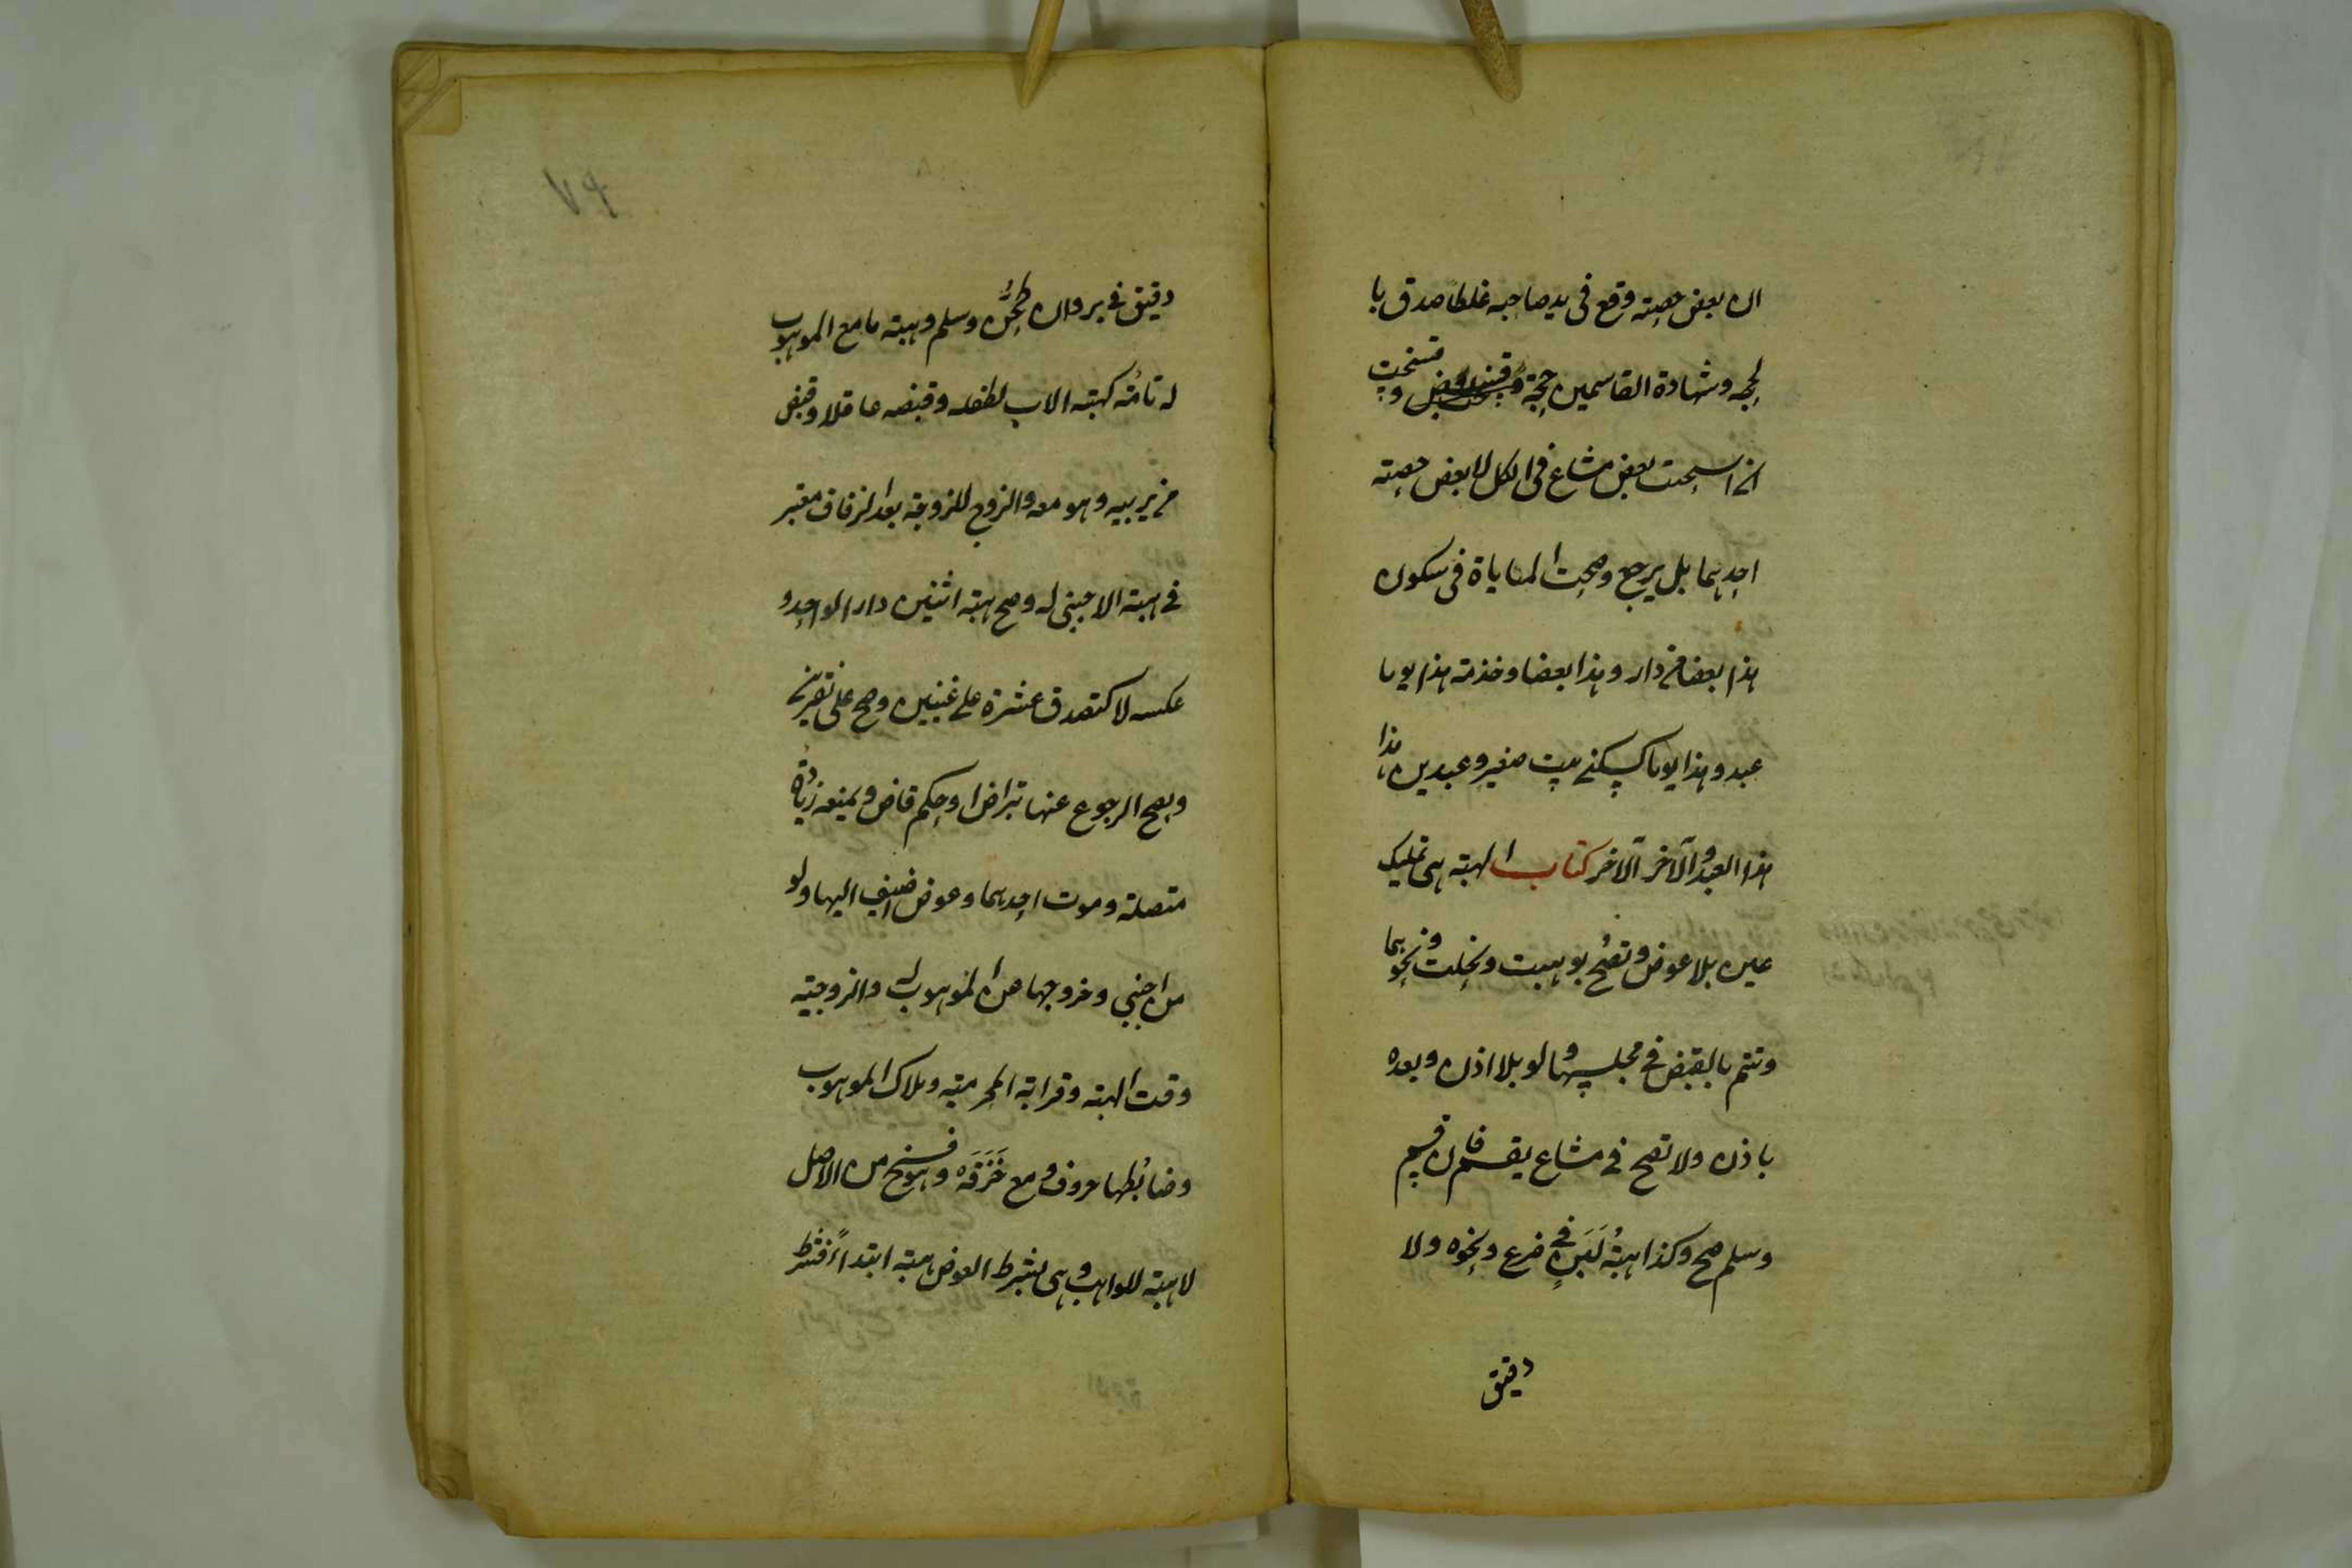 ان بعض حصته وقع فى يد صاحبه غلطا صدق با
لحجه وشهادة القاسمين حجة وفسخت
ان استحق بعض مشاع فى الكل لا بعض حصته
احدهما بل يرجع وصحت المهاياة فى سكون
هذا بعضا من دار وهذا بعضا وخدمة هذا يوما
عبد وهذا يوما كسكنى بيت صغير وعبدين هذا
هذا العبد والآخر الآخر كتاب الهبة هى تمليك
عين بلا عوض وتصح بوهبت ونحلت ونحوهما
وتتم بالقبض فى مجلسها ولو بلا اذن وبعده
باذن ولا تصح فى مشاع يقسم فان قسم
وسلم صح وكذا هبة لبن فى ضرع ونحوه ولا
دقيق
٧٩
دقيق فى بر وان طحن وسلم وهبة ما مع الموهوب
له تامة كهبة الاب لطفله وقبضه عاقلا وقبض
من يربيه وهو معه والزوج للزوجة بعد الزفاف معتبر
فى هبة الاجنبى له وصح هبة اثنين دار الواحد و
عكسه لا كتصدق عشرة على غنيين وصح على فقيرين
ويصح الرجوع عنها بتراض او حكم قاض ويمنعه زيادة
متصلة وموت احدهما وعوض اضيف اليها ولو
من اجنبي وخروجها عن الموهوب له والزوجية
وقت الهبة وقرابة المحرمية وهلاك الموهوب
وضابطها حروف دمع خزقه وهو فسخ من الاصل
لا هبة للواهب وهى بشرط العوض هبة ابتداءً فشرط